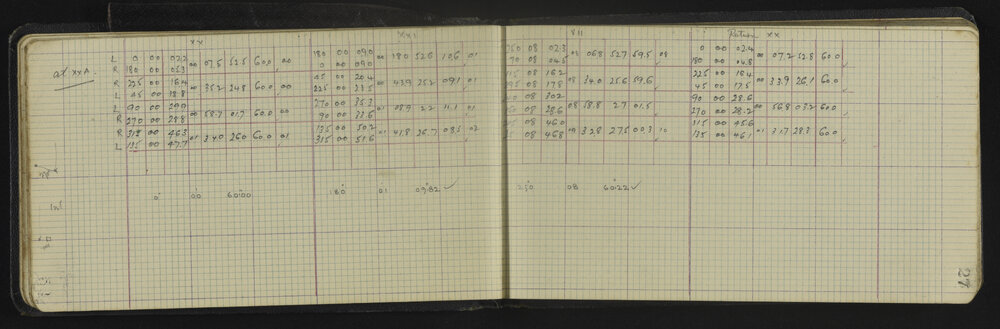 XX XXI VII Return XX
at XXA. L 0 00 02.2 00 07.5 52.5 60.0 00 180 00 09.0 00 18.0 52.6 10.6 01 08 02.3 08 06.8 52.7 59.5 08 0 00 02.4 00 07.2 52.8 60.0
R 180 00 05.3 0 00 09.0 70 08 04.5 180 00 04.8
R 225 00 16.4 00 35.2 24.8 60.0 00 45 00 20.4 00 43.9 25.2 09.1 01 08 16.2 08 34.0 25.6 59.6 225 00 16.4 00 33.9 26.1 60.0
L 45 00 18.8 225 00 23.5 08 17.8 45 00 17.5
L 90 00 29.9 00 58.7 01.7 60.0 00 270 00 35.3 01 08.9 2.2 11.1 01 08 30.2 08 58.8 2.7 01.5 90 00 28.6 00 56.8 03.2 60.0
R 270 00 28.8 90 00 33.6 08 28.6 270 00 28.2
R 318 00 46.3 01 34.0 26.0 60.0 01 135 00 50.2 01 41.8 26.7 08.5 02 08 46.0 09 32.8 27.5 00.3 10 315 00 45.6 01 31.7 28.3 60.0
L 135 00 47.7 315 00 51.6 08 46.8 135 00 46.1
0° 00 60.00 180° 01 09.82 ✓ 250 08 60.22 ✓
27